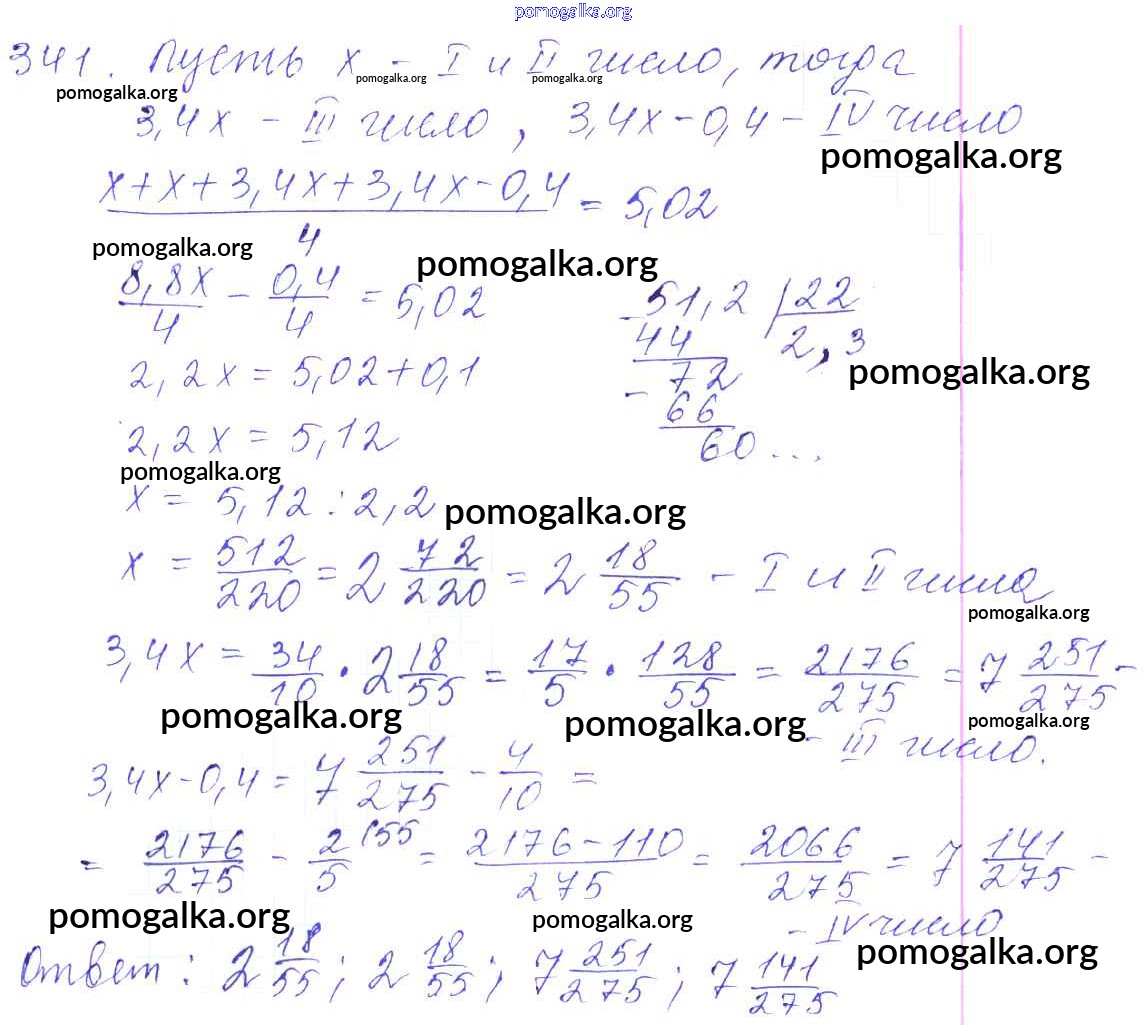 pomogalka.org
341. Пусть x - I и II число, тогда
pomogalka.org pomogalka.org pomogalka.org
3,4x - III число, 3,4x-0,4 - IV число
pomogalka.org
x+x+3,4x+3,4x-0,4 / 4 = 5,02
pomogalka.org pomogalka.org
8,8x/4 - 0,4/4 = 5,02
51,2 | 22
- 44 2,3
2,2x = 5,02+0,1
72
pomogalka.org
- 66
2,2x = 5,12
60...
pomogalka.org
x = 5,12 : 2,2
pomogalka.org
x = 512/220 = 2 72/220 = 2 18/55 - I и II числа
pomogalka.org
3,4x = 34/10 · 2 18/55 = 17/5 · 128/55 = 2176/275 = 7 251/275 -
pomogalka.org pomogalka.org pomogalka.org
- III число.
3,4x-0,4 = 7 251/275 - 4/10 =
= 2176/275 - 2/5 (55 = 2176-110/275 = 2066/275 = 7 141/275 -
pomogalka.org pomogalka.org
- IV число
pomogalka.org
Ответ: 2 18/55; 2 18/55; 7 251/275; 7 141/275